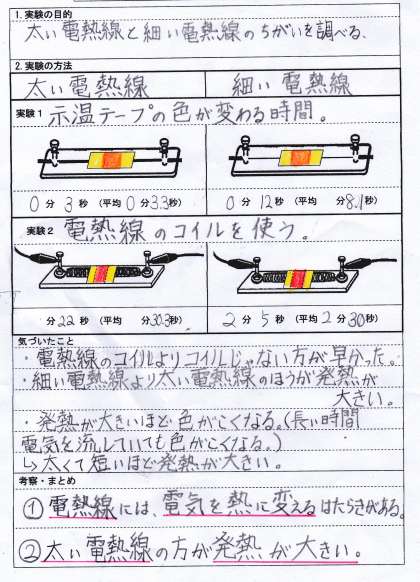 1. 実験の目的
太い電熱線と細い電熱線のちがいを調べる.
2. 実験の方法
太い電熱線 細い電熱線
実験1 示温テープの色が変わる時間。
0 分 3 秒 (平均 0 分3.3秒) 0 分 12 秒 (平均 分8.1秒)
実験2 電熱線のコイルを使う。
分22 秒 (平均 分30.3秒) 2 分 5 秒 (平均 2 分 30秒)
気づいたこと
・電熱線のコイルよりコイルじゃない方が早かった。
・細い電熱線より太い電熱線のほうが発熱が
大きい。
・発熱が大きいほど色がこくなる。(長い時間
電気を流していても色がこくなる。)
↳太くて短いほど発熱が大きい。
考察・まとめ
①電熱線には、電気を熱に変えるはたらきがある。
②太い電熱線の方が発熱が大きい。